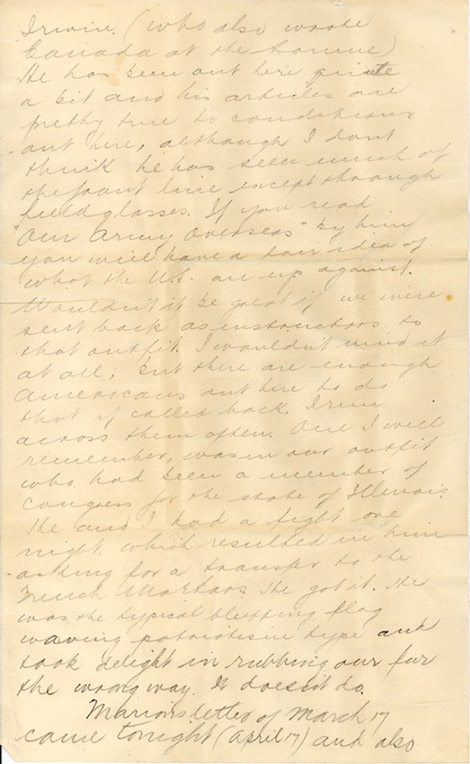 Irwin. (who also wrote
Canada at the Somme)
He has been out here quite
a bit and his articles are
pretty true to conditions
out here, although I dont
think he has seen much of
the front line except through
field glasses. If you read
"Our Army Overseas" by him
you will have a fair idea of
what the U.S. are up against.
Wouldn't it be great if we were
sent back as instructors to
that outfit. I wouldn't mind it
at all, but there are enough
Americans out here to do
that if called back. I run
across them often. One I well
remember, was in our outfit
who had been a member of
Congress for the state of Illinois.
He and I had a fight one
night which resulted in him
asking for a transfer to the
Trench Mortars. He got it. He
was the typical flag
waving patriotism type and
took delight in rubbing our fur
the wrong way. It doesn't do.
Marion's letter of March 17
came tonight (April 17) and also